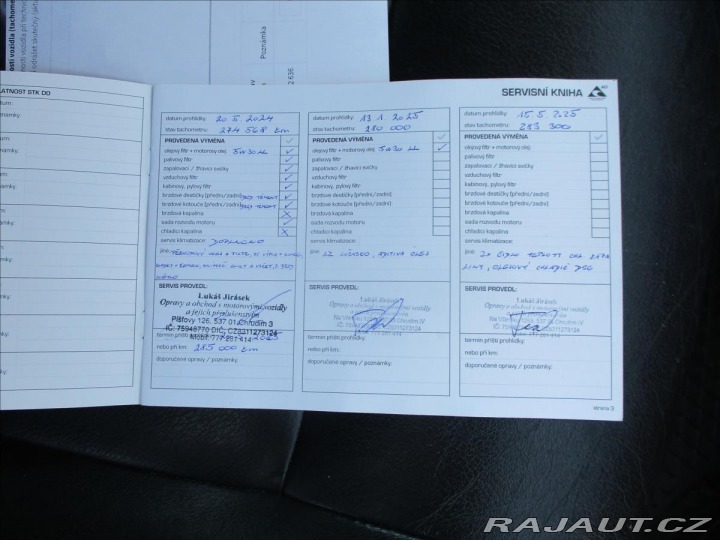 osti vozidla (tachome
Poznámka
2 636
SERVISNÍ KNIHA
PLATNOST STK DO
datum:
datum prohlídky: 20 5. 2024
stav tachometru: 274 568 km
PROVEDENÁ VÝMĚNA
olejový filtr + motorový olej 5W30 LL ✓
palivový filtr ✓
zapalovací / žhavící svíčky ✓
vzduchový filtr ✓
kabinový, pylový filtr ✓
brzdové destičky (přední/zadní)
brzdové kotouče (přední/zadní)
brzdová kapalina X
sada rozvodů motoru ✓
chladící kapalina X
servis klimatizace: DOPLNĚNO
jiné:
SERVIS PROVEDL:
Lukáš Jirásek
Opravy a obchod s motorovými vozidly
a jejich příslušenstvím
Píšťovy 126, 537 01 Chrudim 3
IČ: 75948770 DIČ: CZ8311273124
Mobil: 777 281 414
termín příští prohlídky: 2025
nebo při km: 285 000 km
doporučené opravy / poznámky:
datum prohlídky: 13 1. 2025
stav tachometru: 280 000
PROVEDENÁ VÝMĚNA
olejový filtr + motorový olej 5W30 LL ✓
palivový filtr
zapalovací / žhavící svíčky
vzduchový filtr
kabinový, pylový filtr
brzdové destičky (přední/zadní)
brzdové kotouče (přední/zadní)
brzdová kapalina
sada rozvodů motoru
chladící kapalina
servis klimatizace:
jiné:
SERVIS PROVEDL:
Lukáš Jirásek
Opravy a obchod s motorovými vozidly
termín příští prohlídky:
nebo při km:
doporučené opravy / poznámky:
datum prohlídky: 15. 5. 2025
stav tachometru: 283 300
PROVEDENÁ VÝMĚNA
olejový filtr + motorový olej
palivový filtr
zapalovací / žhavící svíčky
vzduchový filtr
kabinový, pylový filtr
brzdové destičky (přední/zadní)
brzdové kotouče (přední/zadní)
brzdová kapalina
sada rozvodů motoru
chladící kapalina
servis klimatizace:
jiné: 2x ČIDLO TEPLOTY CHL. KAPA
LINY, OLEJOVÝ CHLADIČ DSG
SERVIS PROVEDL:
Lukáš Jirásek
Opravy a obchod s motorovými vozidly
termín příští prohlídky:
nebo při km:
doporučené opravy / poznámky:
strana 3
RAJAUT.CZ